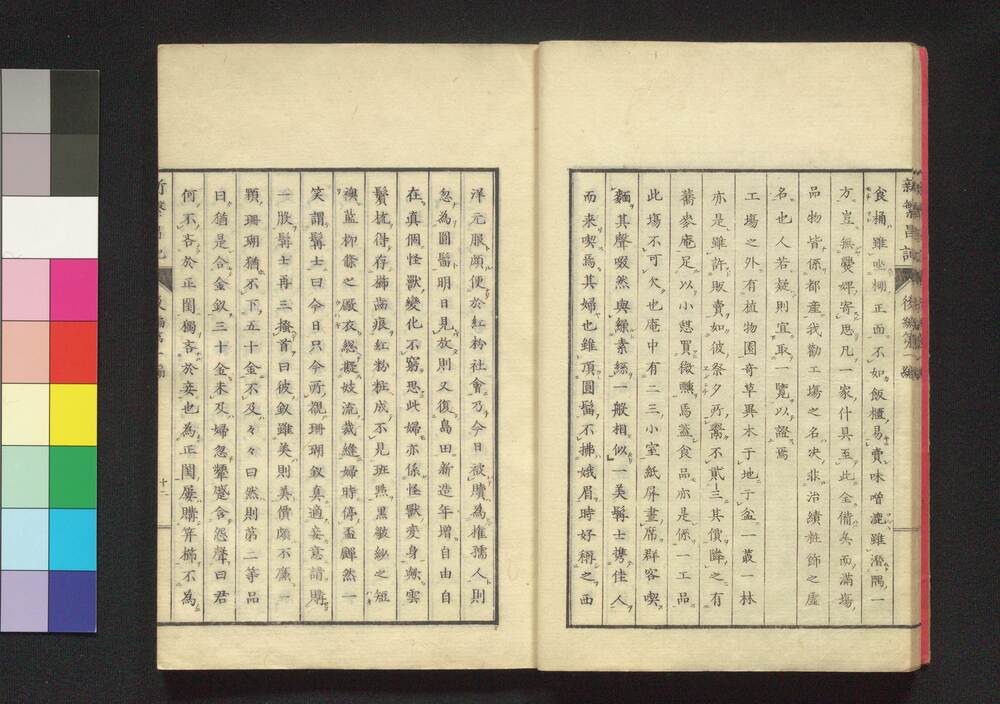 食桶雖坐棚正面不如飯櫃易賣味噌漉雖潛隅一
方豈無嬖婢寄思凡一家什具至此全備矣而滿塲
品物皆係都產我勸工塲之名决非治績粧飾之虛
名也人若疑則宜取一覽以證焉
工塲之外有植物園奇草異木于地于盆一叢一林
亦是雖許販賣如彼祭夕所鬻不貳三其價降之有
蕎麥庵足以小憩買微醺焉蓋食品亦是係一工品
此塲不可欠也庵中有二三小室紙屏畫席群客喫
麵其聲啜然與繰素絲一般相似一美髯士携佳人
而來喫焉其婦也雖頂圓髷不拂娥眉時好稱之西
洋元服頗便於紅粉社會乃今日被贖為權孺人則
忽為圓髷明日見放則又復島田新造年增自由自
在真個怪獸變化不窮思此婦亦係怪獸變身歟雲
鬢抗得存櫛齒痕紅粉粧成不見班㸃黑皺紗之短
襖藍柳條之
笑謂髯士曰今日只今所觀珊瑚釵真適妾意請購
一股髯士再三搔首曰彼釵雖美則美價頗不廉一
顆珊瑚猶不下五十金不及々々曰然則第二等品
曰猶是合金釵三十金未及婦忽顰蹙含怨聲曰君
何不吝於正閨獨吝於妾也為正閨屢購笄櫛不為
十二